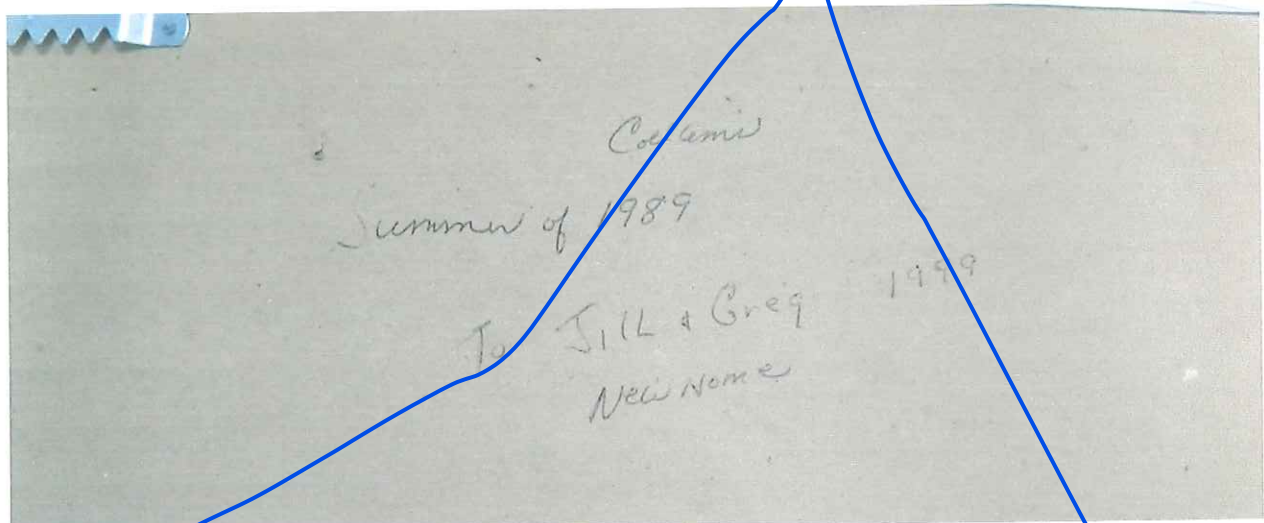 Summer of 1989
To Jill & Greg 1999
New Home